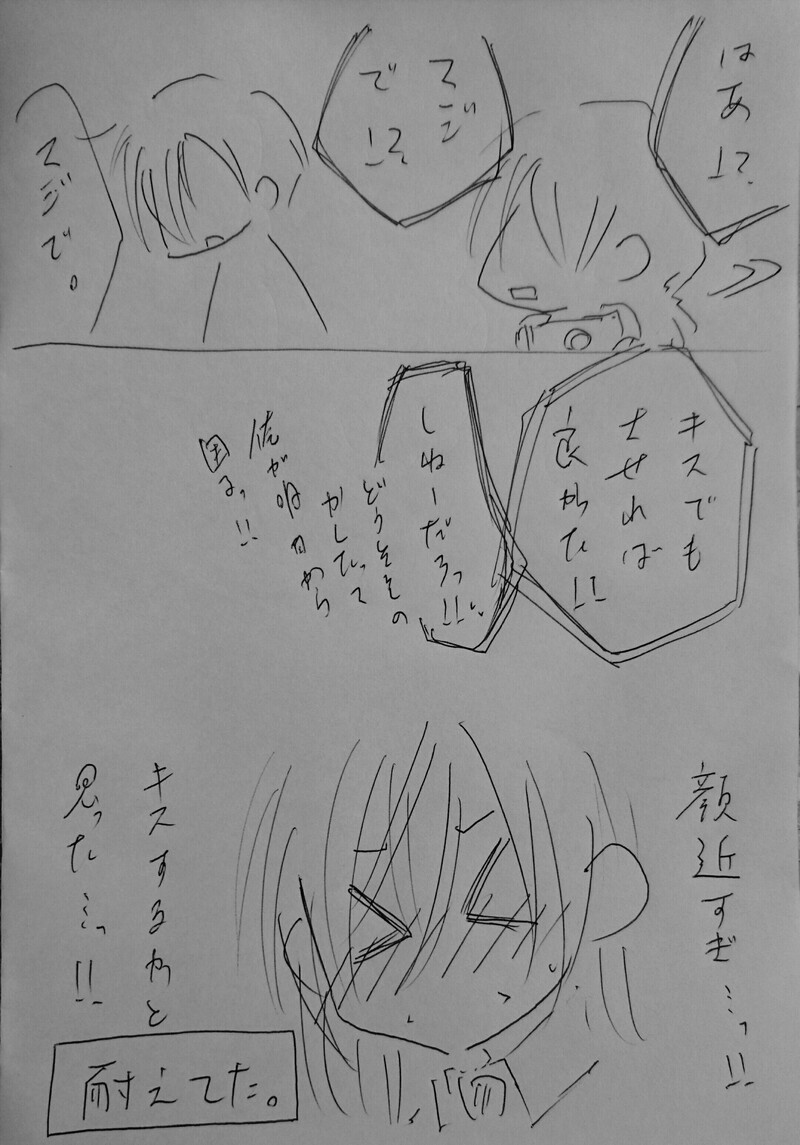 はあ!?
マジ
で
!?
マジで。
キスでも
させれば
良かた!!
しねーだろっ!!
どうそその
かしたって
俺が明日から
困るっ!!
顔近すぎ…っ!!
キスするかと
思った…っ!!
耐えてた。